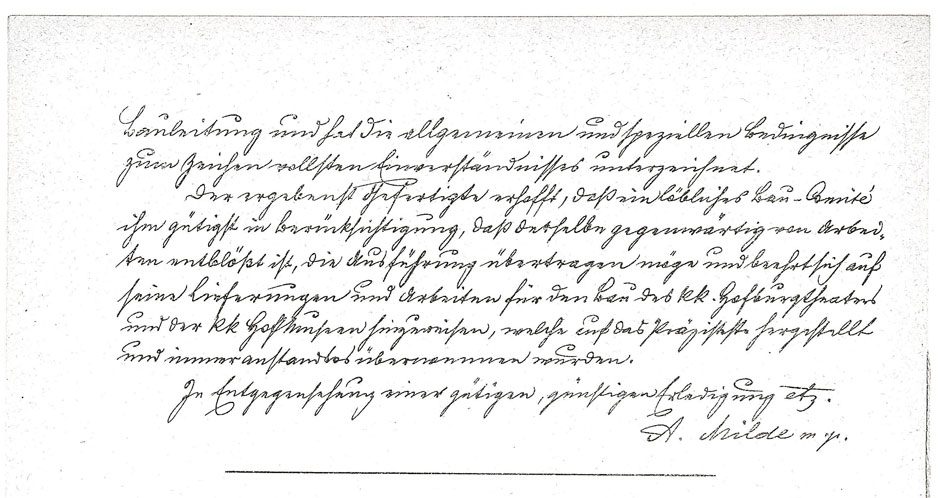 Bauleitung und hat die allgemeinen und speziellen Bedingnisse
zum Zeichen vollsten Einverständnisses unterzeichnet.
Der ergebenst Gefertigte erhofft, daß ein löbliches Bau-Comité
ihm gütigst in Berücksichtigung, daß derselbe gegenwärtig von Arbei-
ten entblößt ist, die Ausführung übertragen möge und beehrt sich auf
seine Lieferungen und Arbeiten für den Bau des kk. Hofburgtheaters
und der kk Hofmuseen hinzuweisen, welche auf das Präziseste hergestellt
und immer anstandslos übernommen wurden.
In Entgegensehung einer gütigen, günstigen Erledigung etz.
A. Milde m. p.